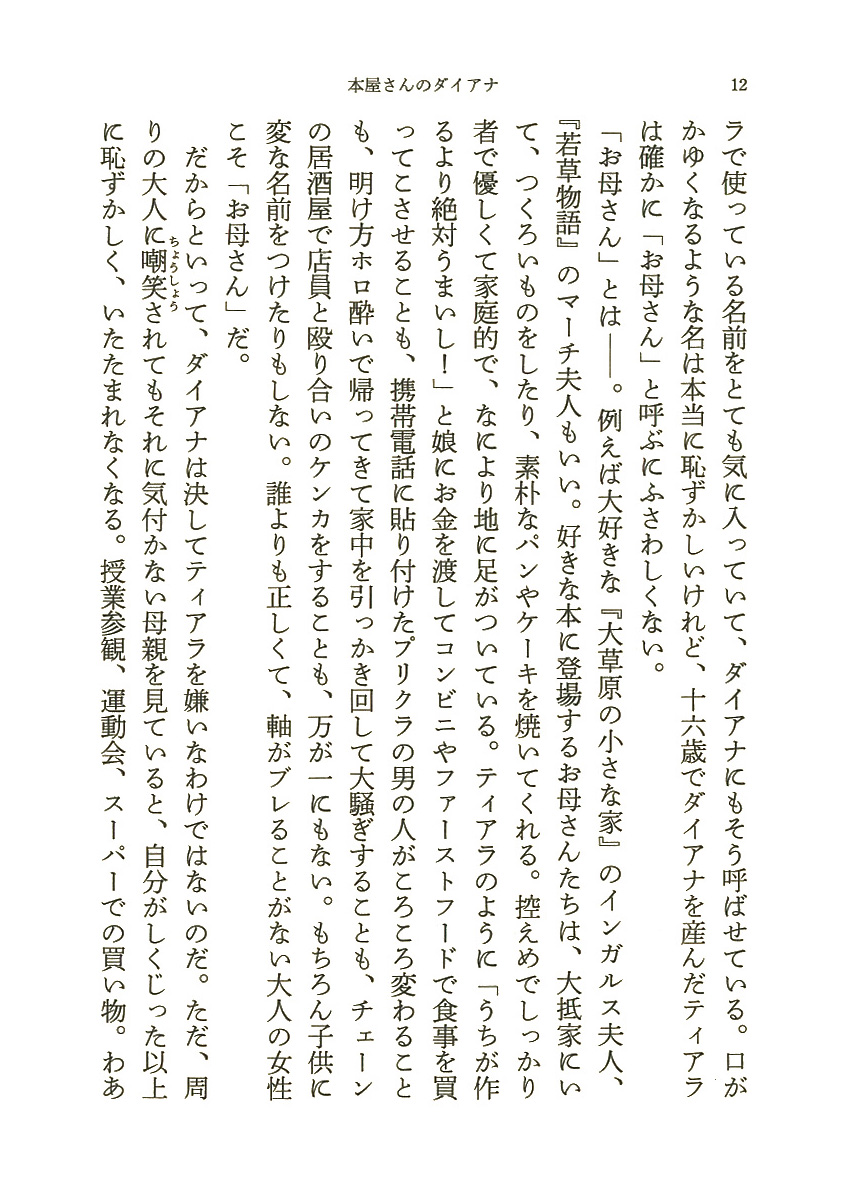 本屋さんのダイアナ
12
ラで使っている名前をとても気に入っていて、ダイアナにもそう呼ばせている。口が
かゆくなるような名は本当に恥ずかしいけれど、十六歳でダイアナを産んだティアラ
は確かに「お母さん」と呼ぶにふさわしくない。
「お母さん」とは――。例えば大好きな『大草原の小さな家』のインガルス夫人、
『若草物語』のマーチ夫人もいい。好きな本に登場するお母さんたちは、大抵家にい
て、つくろいものをしたり、素朴なパンやケーキを焼いてくれる。控えめでしっかり
者で優しくて家庭的で、なにより地に足がついている。ティアラのように「うちが作
るより絶対うまいし！」と娘にお金を渡してコンビニやファーストフードで食事を買
ってこさせることも、携帯電話に貼り付けたプリクラの男の人がころころ変わること
も、明け方ホロ酔いで帰ってきて家中を引っかき回して大騒ぎすることも、チェーン
の居酒屋で店員と殴り合いのケンカをすることも、万が一にもない。もちろん子供に
変な名前をつけたりもしない。誰よりも正しくて、軸がブレることがない大人の女性
こそ「お母さん」だ。
だからといって、ダイアナは決してティアラを嫌いなわけではないのだ。ただ、周
りの大人に嘲笑ちょうしょうされてもそれに気付かない母親を見ていると、自分がしくじった以上
に恥ずかしく、いたたまれなくなる。授業参観、運動会、スーパーでの買い物。わあ